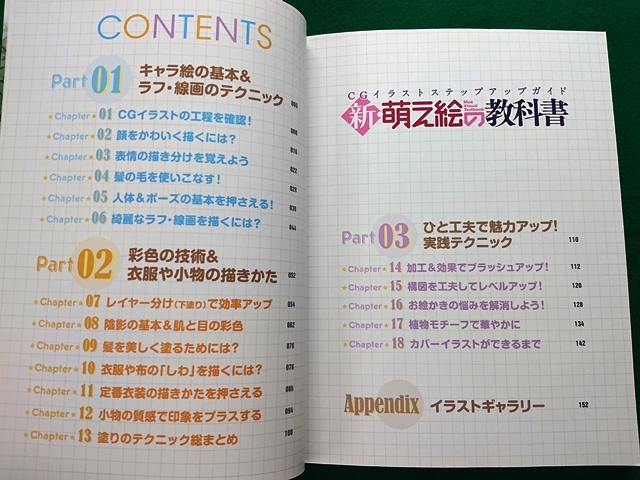 CONTENTS
Part 01 キャラ絵の基本&
ラフ・線画のテクニック 006
Chapter★01 CGイラストの工程を確認!
Chapter★02 顔をかわいく描くには?
Chapter★03 表情の描き分けを覚えよう
Chapter★04 髪の毛を使いこなす! 022
Chapter★05 人体&ポーズの基本を押さえる!
Chapter★06 綺麗なラフ・線画を描くには? 044
Part 02 彩色の技術&
衣服や小物の描きかた 052
Chapter★07 レイヤー分け(下塗り)で効率アップ 054
Chapter★08 陰影の基本&肌と目の彩色 062
Chapter★09 髪を美しく塗るためには? 070
Chapter★10 衣服や布の「しわ」を描くには? 078
Chapter★11 定番衣装の描きかたを押さえる
Chapter★12 小物の質感で印象をプラスする 094
Chapter★13 塗りのテクニック総まとめ 100
CGイラストステップアップガイド
新 萌え絵の教科書
Moe Visual Textbook
Part 03 ひと工夫で魅力アップ!
実践テクニック 110
Chapter★14 加工&効果でブラッシュアップ! 112
Chapter★15 構図を工夫してレベルアップ! 120
Chapter★16 お絵かきの悩みを解消しよう! 128
Chapter★17 植物モチーフで華やかに 134
Chapter★18 カバーイラストができるまで 142
Appendix イラストギャラリー 152